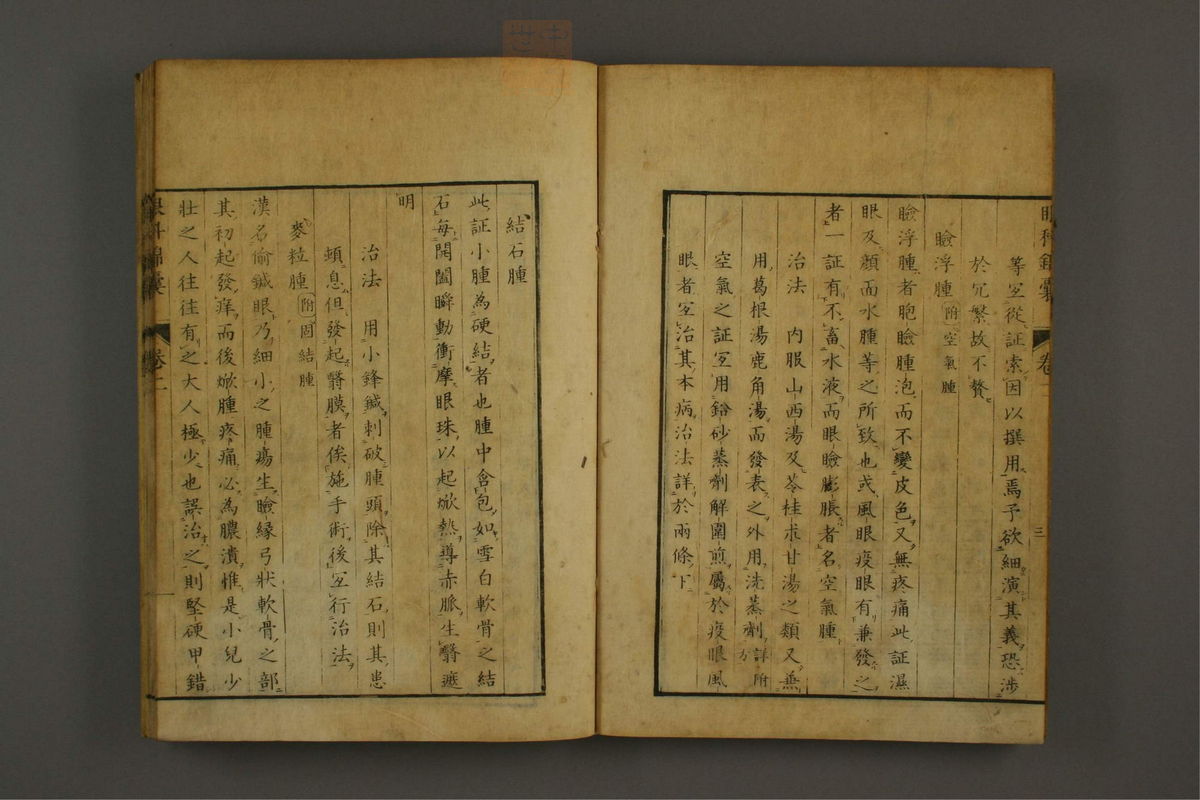 等宜從証索因以撰用焉予欲細演其義恐涉
於冗繁故不贅
瞼浮腫 附空氣腫
瞼浮腫者胞瞼腫泡而不變皮色又無疼痛此証濕
眼及顔面水腫等之所致也或風眼疫眼有兼發之
者一証有不畜水液而眼瞼膨脹者名空氣腫
治法 内服山西湯及苓桂朮甘湯之類又無
用葛根湯鹿角湯而發表之外用洗蒸劑詳附方
空氣之証宜用鉛砂蒸劑解圍煎屬於疫眼風
眼者宜治其本病治法詳於兩條下
卷二
三
結石腫
此証小腫為硬結者也腫中含包如雪白軟骨之結
石每開闔瞬動衝摩眼珠以起焮熱導赤脈生翳遮
明
治法 用小鋒鍼刺破腫頭除其結石則其患
頓息但發起翳膜者俟施手術後宜行治法
麥粒腫 附固結腫
漢名偷鍼眼乃細小之腫瘍生瞼緣弓狀軟骨之部
其初起發痒而後焮腫疼痛必為膿潰惟是小兒少
壯之人往往有之大人極少也誤治之則堅硬甲錯
眼科錦囊
卷二